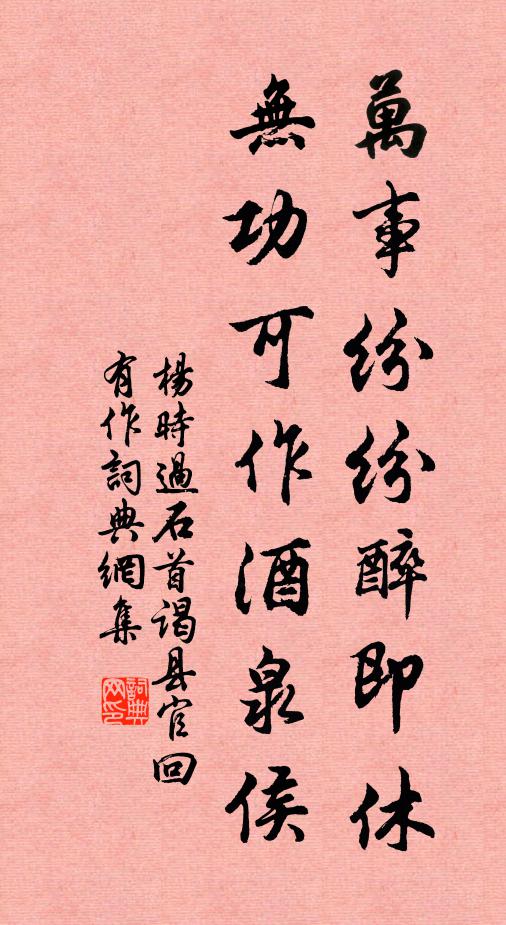 萬事紛紛醉即休
無功可作酒泉侯
楊時過石首謁县官回
有作詞典網集
詞典
网印